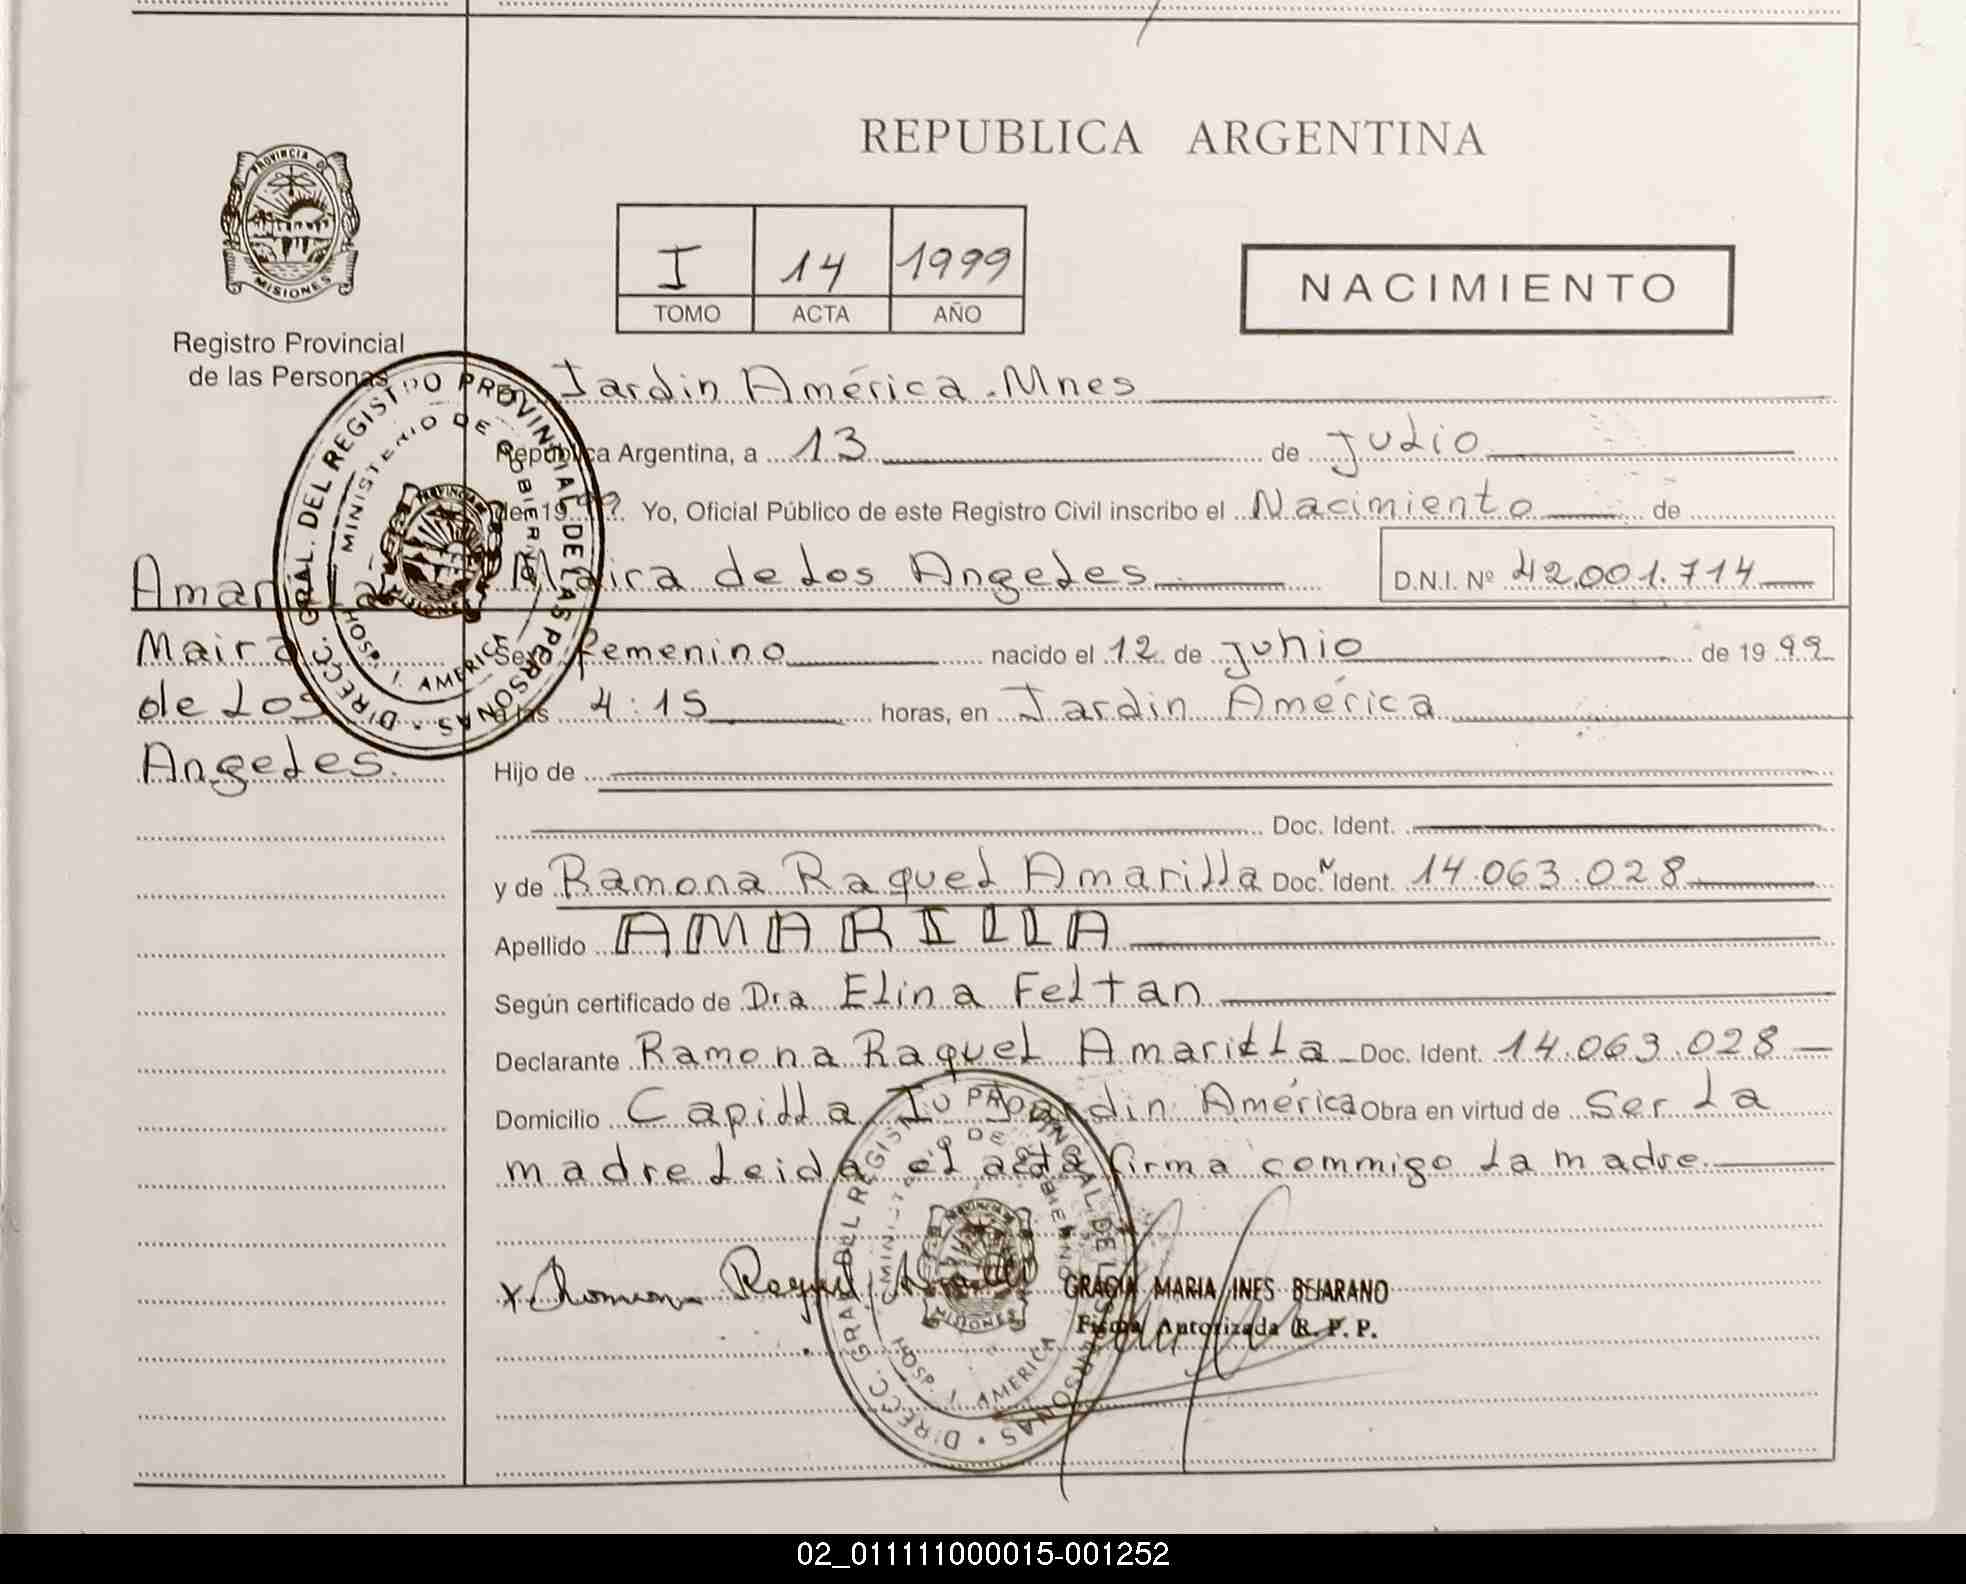 REPUBLICA ARGENTINA
PROVINCIA D
MISIONES
Registro Provincial
de las Personas
I 14 1999
TOMO ACTA AÑO
NACIMIENTO
Jardin América.Mnes
República Argentina, a 13 de Julio
de 19 99 Yo, Oficial Público de este Registro Civil inscribo el Nacimiento de
Maira de los Angeles D.N.I. Nº 42.001.714
Amarilla
Maira
de Los
Angeles.
DIRECC. GRAL. DEL REGISTRO PROVINCIAL DE LAS PERSONAS
MINISTERIO DE GOBIERNO
HOSP. J. AMERICA
PROVINCIA
MISIONES
Sexo femenino nacido el 12 de junio de 19 99
a las 4:15 horas, en Jardin América
Hijo de
Doc. Ident.
y de Ramona Raquel Amarilla Doc. Ident. 14.063.028
Apellido AMARILLA
Según certificado de Dra Elina Feltan
Declarante Ramona Raquel Amarilla Doc. Ident. 14.063.028
Domicilio Capilla Jardin América Obra en virtud de Ser la
madre Leida el acta firma commigo La madre.
DIRECC. GRAL DEL REGISTRO PROVINCIAL DE LAS PERSONAS
MINISTERIO DE GOBIERNO
HOSP. J. AMERICA
MISIONES
x Ramona Raquel Amarilla
GRACIA MARIA INES BEJARANO
Firma Autorizada R. P. P.
02_011111000015-001252